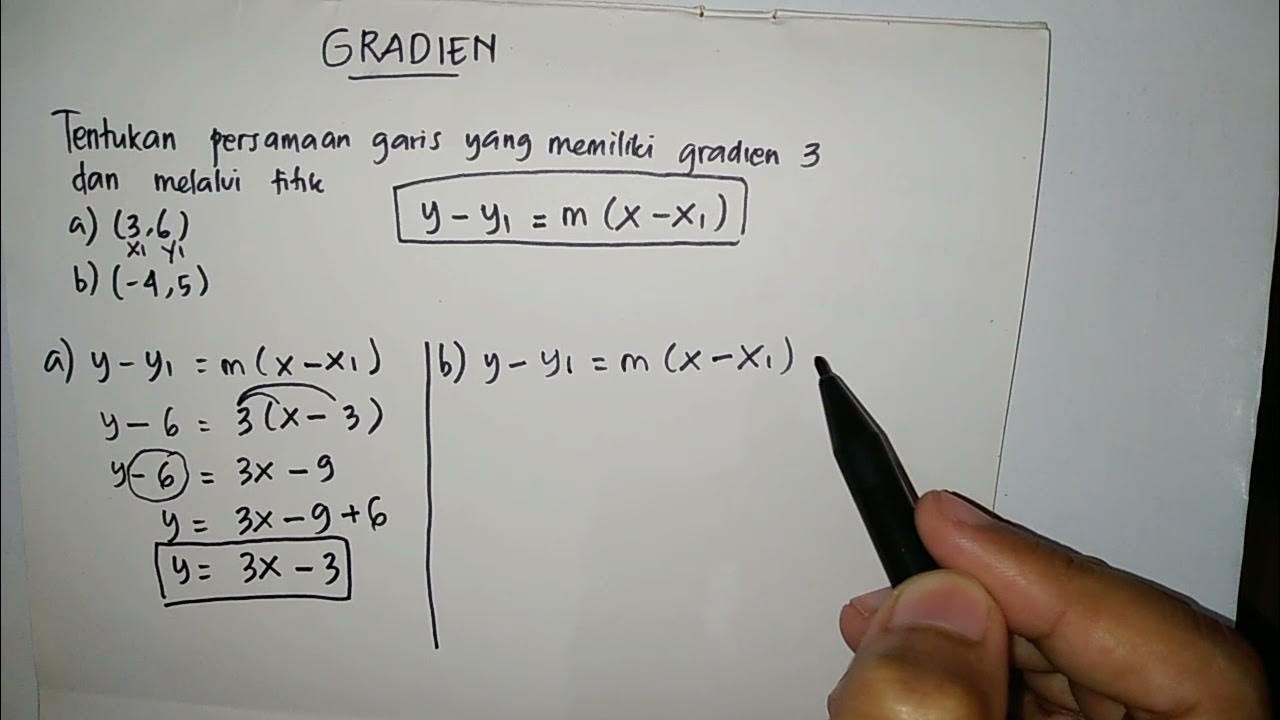 GRADIEN
Tentukan persamaan garis yang memiliki gradien 3
dan melalui titik
y - y₁ = m (x - x₁)
a) (3,6)
x₁ y₁
b) (-4,5)
a) y - y₁ = m (x - x₁)
y - 6 = 3(x - 3)
y - 6 = 3x - 9
y = 3x - 9 + 6
y = 3x - 3
b) y - y₁ = m (x - x₁)